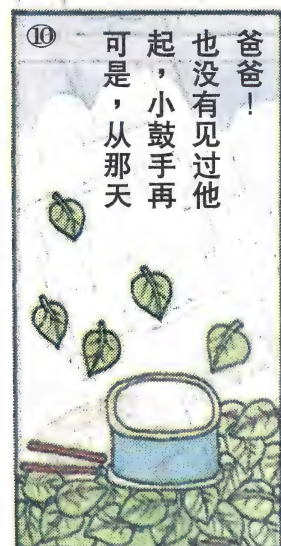 ⑩
可是，从那天
起，小鼓手再
也没有见过他
爸爸！